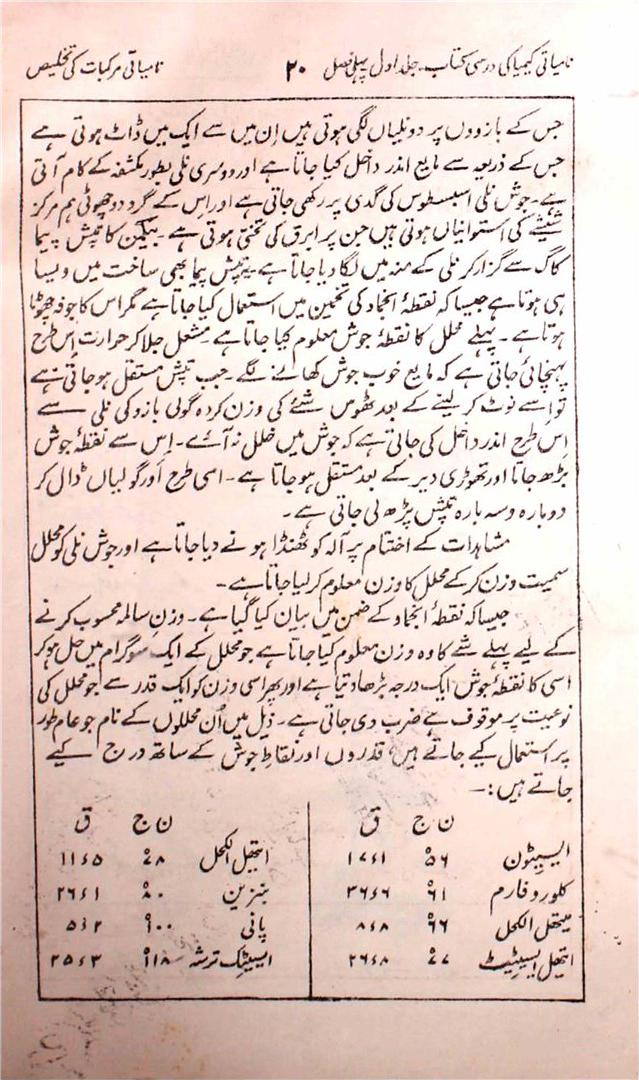 نامیاتی کیمیا کی درسی کتاب۔ جلد اول پہلی فصل ۲۰ نامیاتی مرکبات کی تخلیص
جس کے بازووں پر دو نلیاں لگی ہوتی ہیں اِن میں سے ایک میں ڈاٹ ہوتی ہے
جس کے ذریعہ سے مایع اندر داخل کیا جاتا ہے اور دوسری نلی بطور مکثفہ کے کام آتی
ہے۔ جوش نلی اسبسطوس کی گدی پر رکھی جاتی ہے اور اِس کے گرد دو چھوٹی ہم مرکز
شیشے کی استوانیاں ہوتی ہیں جن پر ابرق کی تختی ہوتی ہے۔ بیکن کا تپش پیما
کاگ سے گزار کر نلی کے منہ میں لگا دیا جاتا ہے۔ یہ تپش پیما بھی ساخت میں ویسا
ہی ہوتا ہے جیسا کہ نقطۂ انجماد کی تخمین میں استعمال کیا جاتا ہے مگر اس کا جوفہ چھوٹا
ہوتا ہے۔ پہلے محلل کا نقطۂ جوش معلوم کیا جاتا ہے۔ مشعل جلا کر حرارت اِس طرح
پہنچائی جاتی ہے کہ مایع خوب جوش کھانے لگے۔ جب تپش مستقل ہو جاتی ہے
تو اِسے نوٹ کر لینے کے بعد ٹھوس شئے کی وزن کردہ گولی بازو کی نلی سے
اِس طرح اندر داخل کی جاتی ہے کہ جوش میں خلل نہ آئے۔ اِس سے نقطۂ جوش
بڑھ جاتا اور تھوڑی دیر کے بعد مستقل ہو جاتا ہے۔ اسی طرح اَور گولیاں ڈال کر
دوبارہ و سہ بارہ تپش پڑھ لی جاتی ہے۔
مشاہدات کے اختتام پر آلہ کو ٹھنڈا ہونے دیا جاتا ہے اور جوش نلی کو محلل
سمیت وزن کر کے محلل کا وزن معلوم کر لیا جاتا ہے۔
جیسا کہ نقطۂ انجماد کے ضمن میں بیان کیا گیا ہے۔ وزنِ سالمہ محسوب کرنے
کے لیے پہلے شے کا وہ وزن معلوم کیا جاتا ہے جو محلل کے ایک سو گرام میں حل ہو کر
اسی کا نقطۂ جوش ایک درجہ بڑھا دیتا ہے اور پھر اسی وزن کو ایک قدر سے جو محلل کی
نوعیت پر موقوف ہے ضرب دی جاتی ہے۔ ذیل میں اُن محللوں کے نام جو عام طور
پر استعمال کیے جاتے ہیں قدروں اور نقاطِ جوش کے ساتھ درج کیے
جاتے ہیں:۔
ن ج ق ن ج ق
ایسیٹون ۵۶° ۱۷ء۱ ایتھل الکحل ۷۸° ۱۱ء۵
کلوروفارم ۶۱° ۳۶ء۶ بنزین ۸۰° ۲۶ء۱
میتھل الکحل ۶۶° ۸ء۸ پانی ۱۰۰° ۵ء۲
ایتھل ایسیٹیٹ ۷۷° ۲۶ء۸ ایسیٹک ترشہ ۱۱۸° ۲۵ء۳